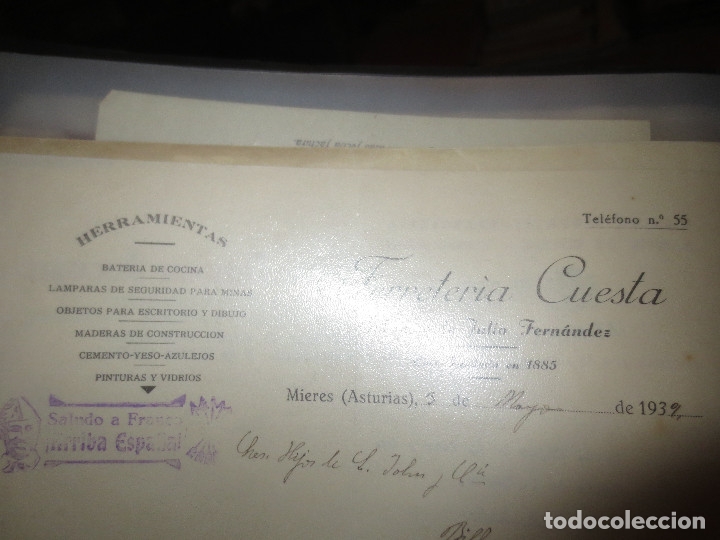 Teléfono n.º 55
HERRAMIENTAS
BATERIA DE COCINA
LAMPARAS DE SEGURIDAD PARA MINAS
OBJETOS PARA ESCRITORIO Y DIBUJO
MADERAS DE CONSTRUCCION
CEMENTO-YESO-AZULEJOS
PINTURAS Y VIDRIOS
Ferretería Cuesta
Julio Fernández
en 1885
Mieres (Asturias), 3 de Mayo de 1939
Saludo a Franco
¡Arriba España!
Hijos de
todocoleccion
todocoleccion.net